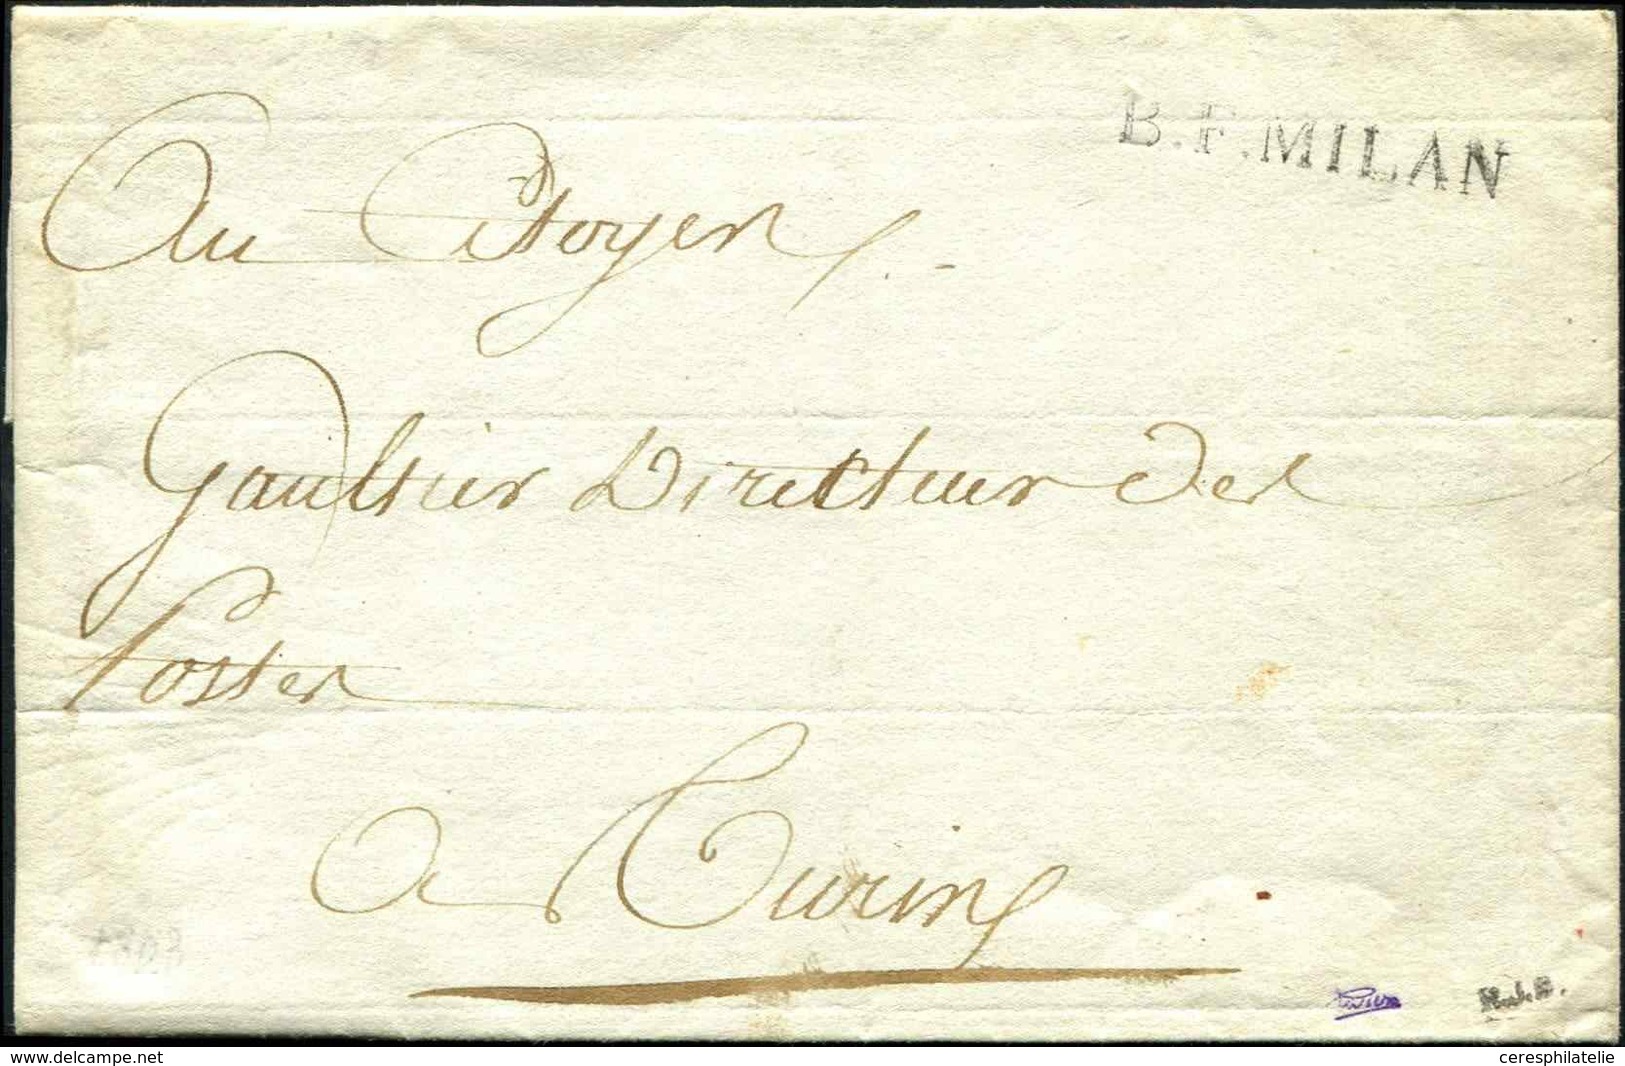 B.F.MILAN
Au Citoyen
Gaultier Directeur des
Postes
a Turin
www.delcampe.net
ceresphilatelie